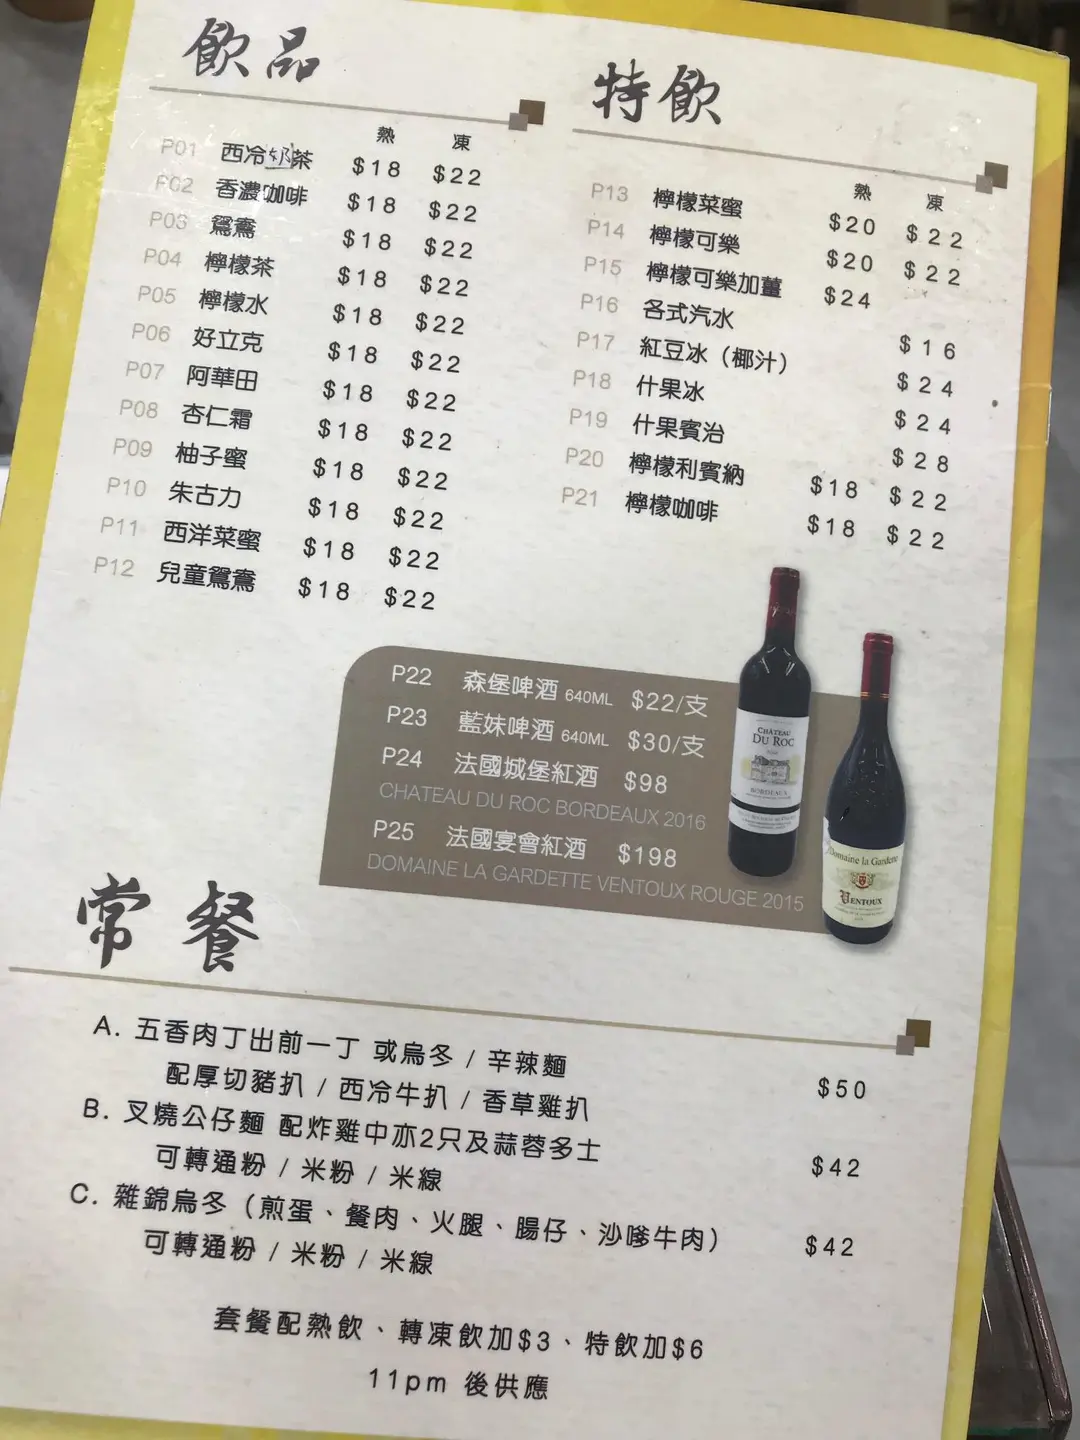 飲品
熱 凍
P01 西冷奶茶 $18 $22
P02 香濃咖啡 $18 $22
P03 鴛鴦 $18 $22
P04 檸檬茶 $18 $22
P05 檸檬水 $18 $22
P06 好立克 $18 $22
P07 阿華田 $18 $22
P08 杏仁霜 $18 $22
P09 柚子蜜 $18 $22
P10 朱古力 $18 $22
P11 西洋菜蜜 $18 $22
P12 兒童鴛鴦 $18 $22
特飲
熱 凍
P13 檸檬菜蜜 $20 $22
P14 檸檬可樂 $20 $22
P15 檸檬可樂加薑 $24
P16 各式汽水 $16
P17 紅豆冰（椰汁） $24
P18 什果冰 $24
P19 什果賓治 $28
P20 檸檬利賓納 $18 $22
P21 檸檬咖啡 $18 $22
P22 森堡啤酒 640ML $22/支
P23 藍妹啤酒 640ML $30/支
P24 法國城堡紅酒 $98
CHATEAU DU ROC BORDEAUX 2016
P25 法國宴會紅酒 $198
DOMAINE LA GARDETTE VENTOUX ROUGE 2015
CHATEAU
DU ROC
BORDEAUX
Domaine la Gardette
VENTOUX
常餐
A. 五香肉丁出前一丁 或烏冬 / 辛辣麵
配厚切豬扒 / 西冷牛扒 / 香草雞扒 $50
B. 叉燒公仔麵 配炸雞中亦2只及蒜蓉多士
可轉通粉 / 米粉 / 米線 $42
C. 雜錦烏冬（煎蛋、餐肉、火腿、腸仔、沙嗲牛肉）
可轉通粉 / 米粉 / 米線 $42
套餐配熱飲、轉凍飲加$3、特飲加$6
11pm 後供應